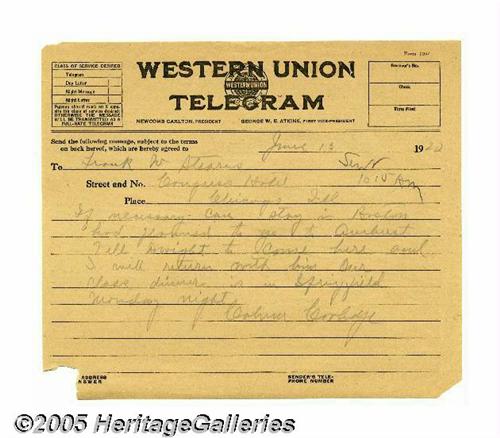 Form 1207
CLASS OF SERVICE DESIRED
Telegram
Day Letter
Night Message
Night Letter
Patrons should mark an X opposite the class of service desired; OTHERWISE THE MESSAGE WILL BE TRANSMITTED AS A FULL-RATE TELEGRAM
WESTERN UNION
WESTERN UNION
TELEGRAM
NEWCOMB CARLTON, PRESIDENT
GEORGE W. E. ATKINS, FIRST VICE-PRESIDENT
Receiver's No.
Check
Time Filed
Send the following message, subject to the terms
on back hereof, which are hereby agreed to
June 13 1920
Sent
10 15 AM
To Frank W Stearns
Street and No. Congress Hotel
Place Chicago Ill
If necessary can stay in Boston
had planned to go to Amherst
Tell Dwight to come here and
I will return with him Our
class dinner is in Springfield
Monday night
Calvin Coolidge
ADDRESS
ANSWER
SENDER'S TELE-
PHONE NUMBER
©2005 HeritageGalleries